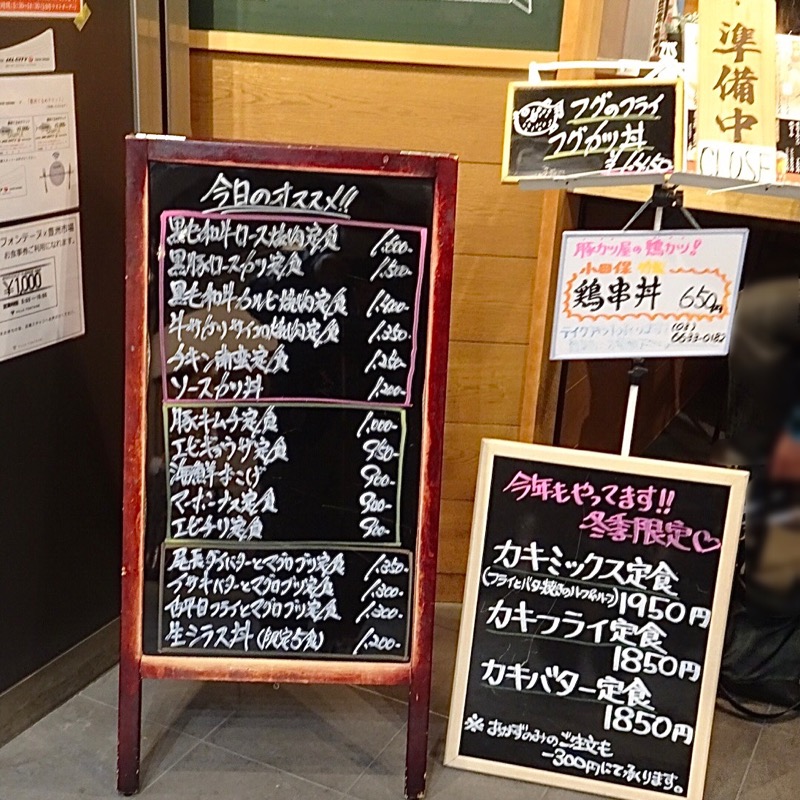 フォンテーヌ×豊洲市場
お食事券ご利用になれます。
¥1,000
今日のオススメ!!
黒毛和牛ロース焼肉定食
黒豚ロースカツ定食 1,500-
黒毛和牛カルビ焼肉定食
チキン南蛮定食 1,250-
ソースカツ丼 1,200-
豚キムチ定食 1,000-
エビギョウザ定食 950-
海鮮おこげ 900-
マーボーナス定食 900-
エビチリ定食 900-
尾長ダイバターとマグロブツ定食 1,350-
イサキバターとマグロブツ定食 1,300-
白平目フライとマグロブツ定食 1,300-
生シラス丼(限定5食) 1,200-
準備中
CLOSE
フグのフライ
フグカツ丼
豚カツ屋の鶏カツ!
小田保
鶏串丼 650円
テイクアウト
(03)
6633-0182
今年もやってます!!
冬季限定♡
カキミックス定食
(フライとバター焼きのハーフ&ハーフ)1950円
カキフライ定食
1850円
カキバター定食
1850円
※おかずのみのご注文も
-300円にて承ります。